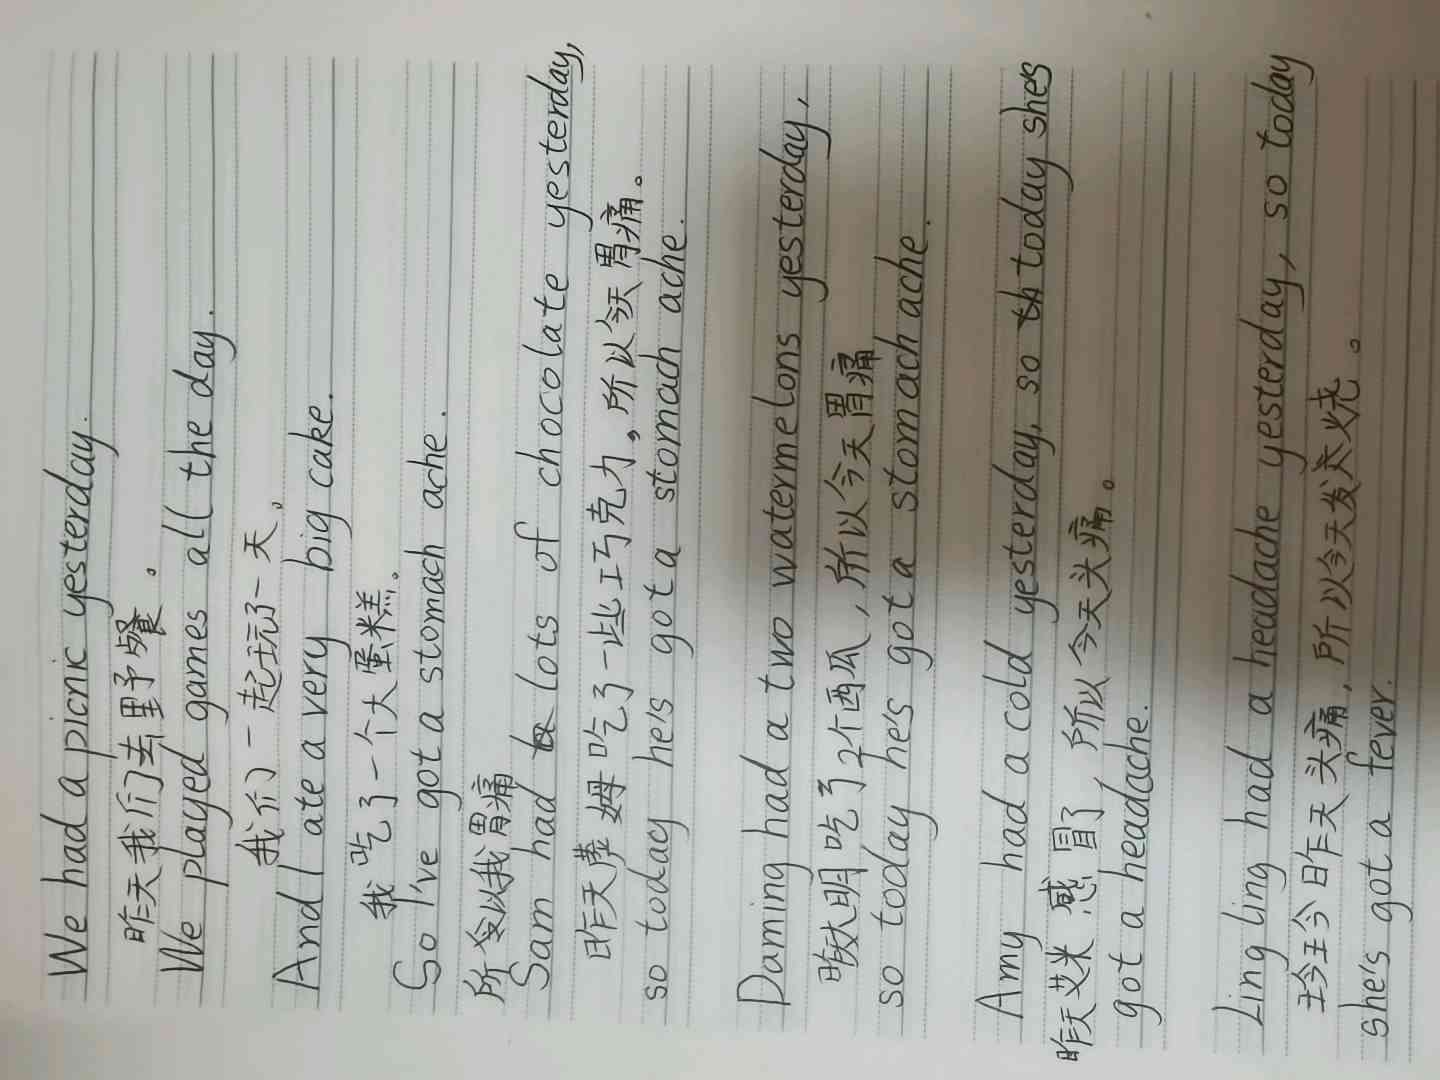 We had a picnic yesterday.
昨天我们去里予餐。
We played games all the day.
我们一起玩了一天。
And I ate a very big cake.
我吃了一个大蛋糕。
So I've got a stomach ache.
所以我胃痛
Sam had lots of chocolate yesterday,
昨天萨姆吃了一些巧克力,所以今天胃痛。
so today he's got a stomach ache.
Daming had a two watermelons yesterday,
昨天大明吃了2个西瓜,所以今天胃痛
so today he's got a stomach ache.
Amy had a cold yesterday, so today she's
昨天艾米感冒了,所以今天头痛。
got a headache.
Ling ling had a headache yesterday, so today
玲玲昨天头痛,所以今天发烧。
she's got a fever.